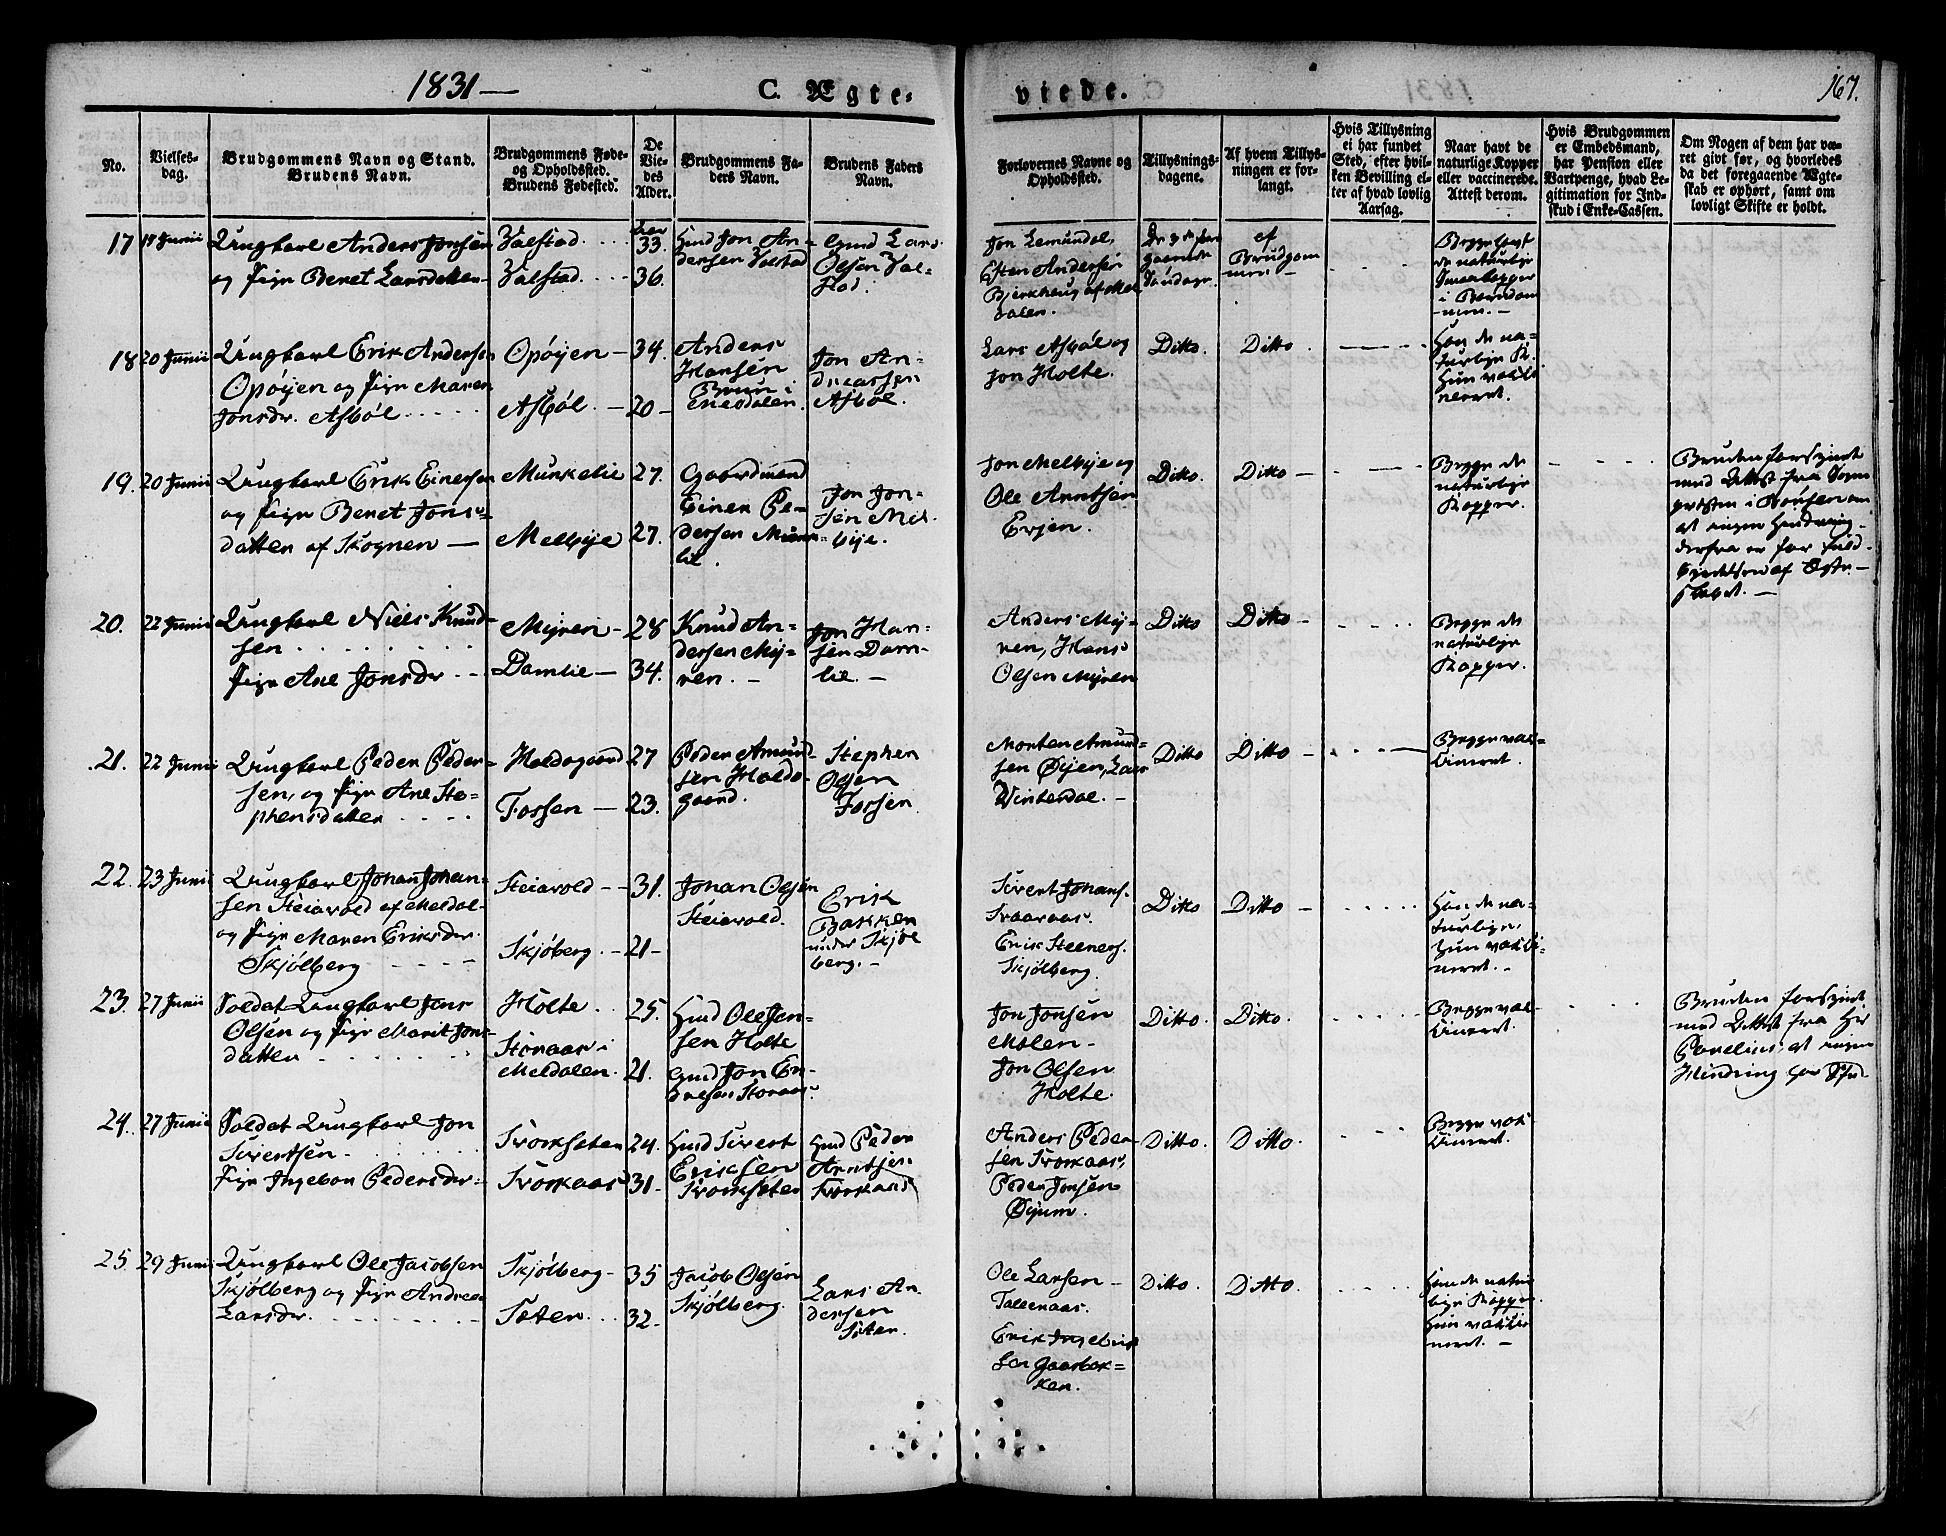 1831 — C. Ægte-
viede. 167.
No.
Vielses-
dag.
Brudgommens Navn og Stand.
Brudens Navn.
Brudgommens Føde-
og Opholdssted.
Brudens Fødested.
De
Vie-
des
Alder.
Brudgommens Fa-
ders Navn.
Brudens Faders
Navn.
Forlovernes Navne og
Opholdssted.
Tillysnings-
dagene.
Af hvem Tillys-
ningen er for-
langt.
Hvis Tillysning
ei har fundet
Sted, efter hvil-
ken Bevilling el-
ler af hvad lovlig
Aarsag.
Naar havt de
naturlige Kopper
eller vaccinerede.
Attest derom.
Hvis Brudgommen
er Embedsmand,
har Pension eller
Vartpenge, hvad Le-
gitimation for Ind-
skud i Enke-Cassen.
Om Nogen af dem har væ-
ret givt før, og hvorledes
da det foregaaende Ægte-
skab er ophørt, samt om
lovligt Skifte er holdt.
17
Junii
Ungkarl Anders Jonsen
og Pige Beret Larsdatter
Valstad
Valstad
33.
36.
Gmd Jon An-
dersen Valstad
Gmd Lars
Olsen Val-
stad.
Jon Lemundal,
Esten Andersen
Bjerkhaug af Mel
dalen.
af
Brudgom
men. —
Begge havt
de naturlige
Smaakopper
i Barndom
men. —
18
20 Junii
Ungkarl Erik Andersen
Opøyen og Pige Maren
Jonsdr. Asbøl
Opøyen — 34.
Asbøl. — 20 —
Anders
Hansen
Bruun i
Enesdalen.
Jon An-
dreassen
Asbøl.
Lars Asbøl og
Jon Holte.
Ditto.
Ditto
Han de na-
turlige K.
Hun vakci
neret.
19.
20 Junii
Ungkarl Erik Einersen
og Pige Beret Jons-
datter af Skognen —
Munkelie 27.
Melbye 27.
Gaardmand
Einer Pe-
dersen Munke-
lie.
Jon Jon-
sen Mel-
bye.
Jon Melbye og
Ole Arntsen
Evjen.
Ditto.
Ditto —
Begge de
naturlige
Kopper.
Bruden forsynet
med Attest fra Sogne
præsten i Skognen om
at ingen Hindring
derfra er for Fuld-
byrdelsen af Ægte-
skabet. —
20.
22 Junii
Ungkarl Niels Knud-
sen
Pige Ane Jonsdr
Myren — 28
Damlie — 34.
Knud An-
dersen My-
ren. —
Jon Han-
sen Dam-
lie. —
Anders My-
ren, Hans
Olsen Myren
Ditto
Ditto —
Begge de
naturlige
Kopper.
21.
22 Junii
Ungkarl Peder Peder-
sen, og Pige Ane Ste-
phensdatter
Holdogaard 27
Fossen — 23.
Peder Amund-
sen Holdo-
gaard.
Stephen
Olsen
Fossen.
Morten Amund-
sen Øyen, Lars
Vinterdal. —
Ditto
Ditto —
Begge vak-
cineret.
22.
23 Junii
Ungkarl Johan Johan-
sen Steiavold af Meldal-
og Pige Maren Eriksdr.
Skjølberg
Steiavold — 31.
Skjøberg. — 21 —
Johan Olsen
Steiavold.
Erik
Bakken
under Skjøl
berg. —
Sivert Johans.
Svaaraas.
Erik Steeners.
Skjølberg.
Ditto
Ditto —
Han de na-
turlige,
Hun vakci-
neret. —
23.
27 Junii
Soldat Ungkarl Jens
Olsen og Pige Marit Jons-
datter
Holte. 25.
Storaas i
Meldalen. 21.
Gmd Ole Jen-
sen Holte
Gmd Jon En-
dresen Storaas.
Jon Jonsen
Molen —
Jon Olsen
Holte.
Ditto.
Ditto.
Begge vak-
cineret.
Bruden forsynet
med Attest fra Hr
Parelius, at ingen
Hindring har Sted.
24.
27 Junii
Soldat Ungkarl Jon
Sivertsen.
Pige Ingebor Pedersdr.
Svorksæter 24.
Svorkaas 31.
Gmd Sivert
Eriksen
Svorksæter
Gmd Peder
Arntsen
Svorkaas
Anders Peder-
sen Svorkaas,
Peder Jonsen
Øyum.
Ditto.
Ditto.
Begge vak-
cineret.
25.
29 Junii
Ungkarl Ole Jacobsen
Skjølberg og Pige Andrea
Larsdr.
Skjølberg — 35
Sæter. 32.
Jacob Olsen
Skjølberg.
Lars An-
dersen
Sæter.
Ole Larsen —
Taleraas.
Erik Ingebrigt
sen Gaarbak-
ken.
Ditto
Ditto.
Han de natur
lige Kopper.
Hun vakci
neret. —